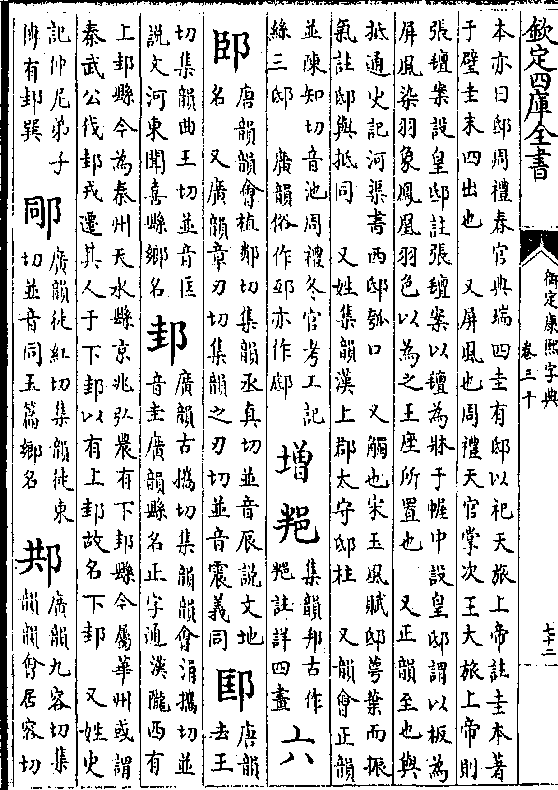 欽定四庫全書
御定康熙字典
卷三十
七十二
本亦曰邸周禮春官典瑞四圭有邸以祀天旅上帝註圭本著
于璧圭末四出也 又屏風也周禮天官掌次王大旅上帝則
張氊案設皇邸註張氊案以氊為牀于幄中設皇邸謂以板為
屏風染羽象鳳凰羽色以為之王座所置也 又正韻至也與
抵通史記河渠書西邸瓠口 又觸也宋玉風賦邸萼葉而振
氣註邸與抵同 又姓集韻漢上郡太守邸杜 又韻會正韻
並陳知切音池周禮冬官考工記
絲三邸 廣韻俗作 亦作
增
集韻邦古作
註詳四畫
六
唐韻韻會植鄰切集韻丞真切並音辰說文地
名 又廣韻章刃切集韻之刃切並音震義同
邼
唐韻去王
切集韻曲王切並音匡
說文河東聞喜縣鄉名
邽
廣韻古攜切集韻韻會涓攜切並
音圭廣韻縣名正字通漢隴西有
上邽縣今為秦州天水縣京兆弘農有下邽縣今屬華州或謂
秦武公伐邽戎遷其人于下邽以有上邽故名下邽 又姓史
記仲尼弟子
傳有邽巽
廣韻徒紅切集韻徒東
切並音同玉篇鄉名
䢼
廣韻九容切集
韻韻會居容切